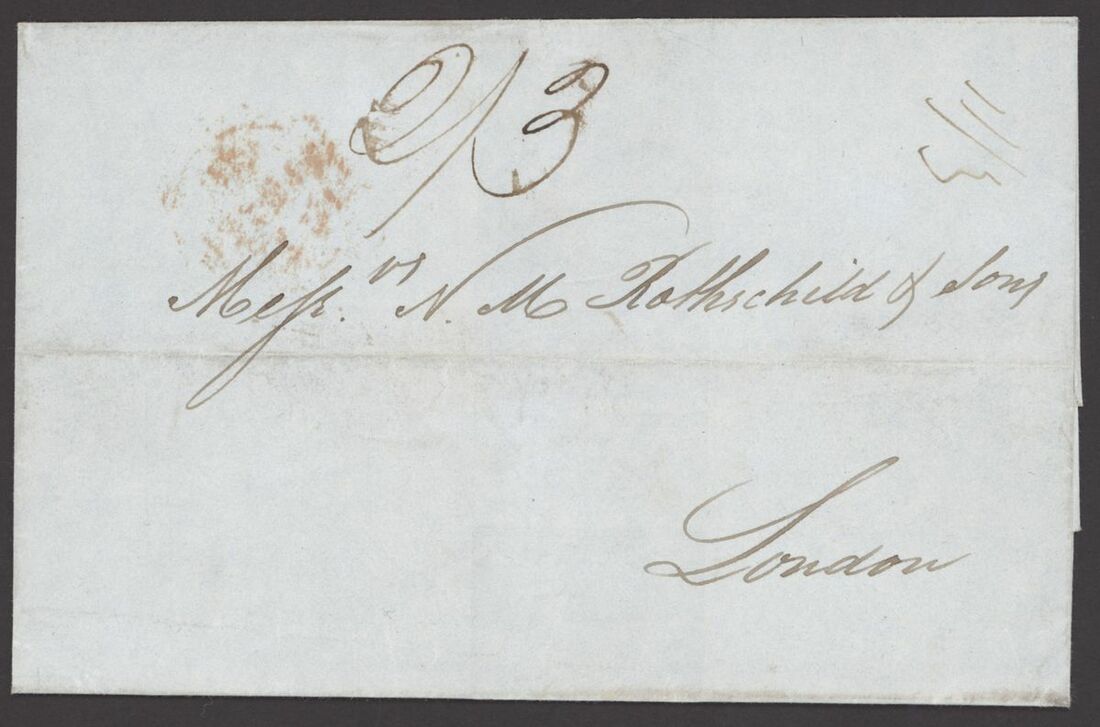 2/3
Messrs N. M Rothschild & Sons
London